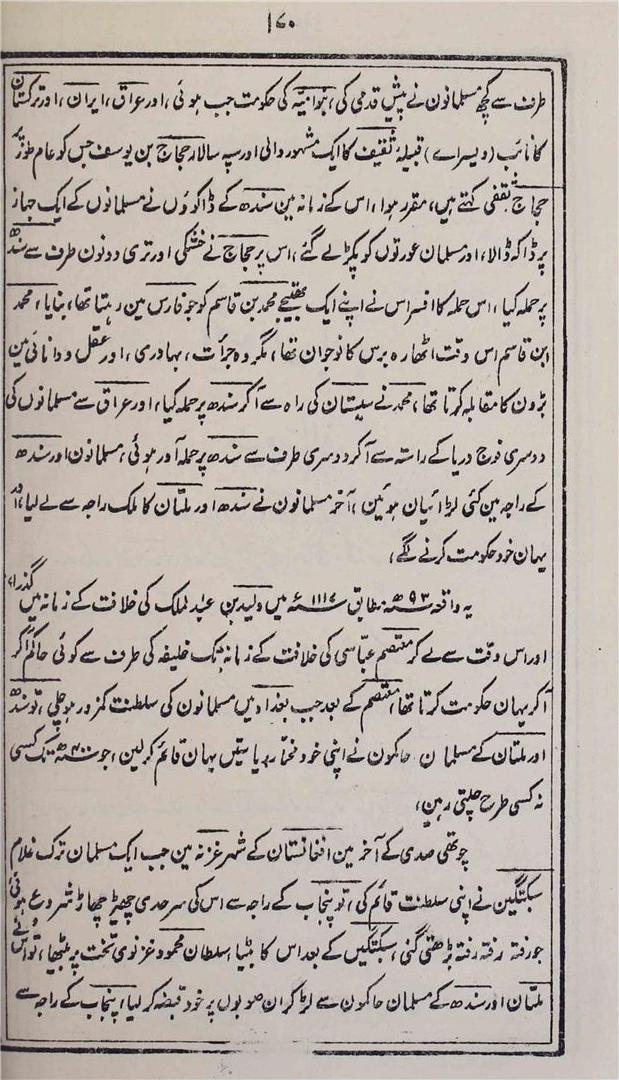 ۱۷۰
طرف سے کچھ مسلمانون نے پیش قدمی کی، بنوامیہ کی حکومت جب ہوئی، اور عراق، ایران، اور ترکستان
کا نائب (ویسراے) قبیلۂ ثقیف کا ایک مشہور والی اور سپہ سالار حجاج بن یوسف جس کو عام طور پر
حجاج ثقفی کہتے ہیں، مقرر ہوا، اس کے زمانہ مین سندھ کے ڈاکوؤں نے مسلمانوں کے ایک جہاز
پر ڈاکہ ڈالا، اور مسلمان عورتوں کو پکڑ لے گئے، اس پر حجاج نے خشکی اور تری دونون طرف سے سندھ
پر حملہ کیا، اس حملہ کا افسر اس نے اپنے ایک بھتیجے محمد بن قاسم کو جو فارس مین رہتا تھا، بنایا، محمد
ابن قاسم اس وقت اٹھارہ برس کا نوجوان تھا، مگر وہ جرأت، بہادری، اور عقل و دانائی مین
بڑون کا مقابلہ کرتا تھا، محمد نے سیستان کی راہ سے آ کر سندھ پر حملہ کیا، اور عراق سے مسلمانوں کی
دوسری فوج دریا کے راستہ سے آ کر دوسری طرف سے سندھ پر حملہ آور ہوئی، مسلمانون اور سندھ
کے راجہ مین کئی لڑائیان ہوئین، آخر مسلمانون نے سندھ اور ملتان کا ملک راجہ سے لے لیا، اور
یہان خود حکومت کرنے لگے،
یہ واقعہ ۹۳ھ مطابق ۱۱۱۷ء میں ولید بن عبدالملک کی خلافت کے زمانہ میں گذرا،
اور اس وقت سے لے کر معتصم عباسی کی خلافت کے زمانہ تک خلیفہ کی طرف سے کوئی حاکم آ کر
آکر یہان حکومت کرتا تھا، معتصم کے بعد جب بغداد میں مسلمانون کی سلطنت کمزور ہو چلی، تو سندھ
اور ملتان کے مسلمان حاکمون نے اپنی خود مختار ریاستیں یہان قائم کرلین، جو ۴۰۰ھ تک کسی
نہ کسی طرح چلتی رہین،
چوتھی صدی کے آخر مین افغانستان کے شہر غزنہ مین جب ایک مسلمان ترک غلام
سبکتگین نے اپنی سلطنت قائم کی، تو پنجاب کے راجہ سے اس کی سرحدی چھیڑ چھاڑ شروع ہوئی
جو رفتہ رفتہ بڑھتی گئی، سبکتگین کے بعد اس کا بیٹا سلطان محمود غزنوی تخت پر بیٹھا، تو اُس نے
ملتان اور سندھ کے مسلمان حاکمون سے لڑ کر ان صوبوں پر خود قبضہ کر لیا، پنجاب کے راجہ سے